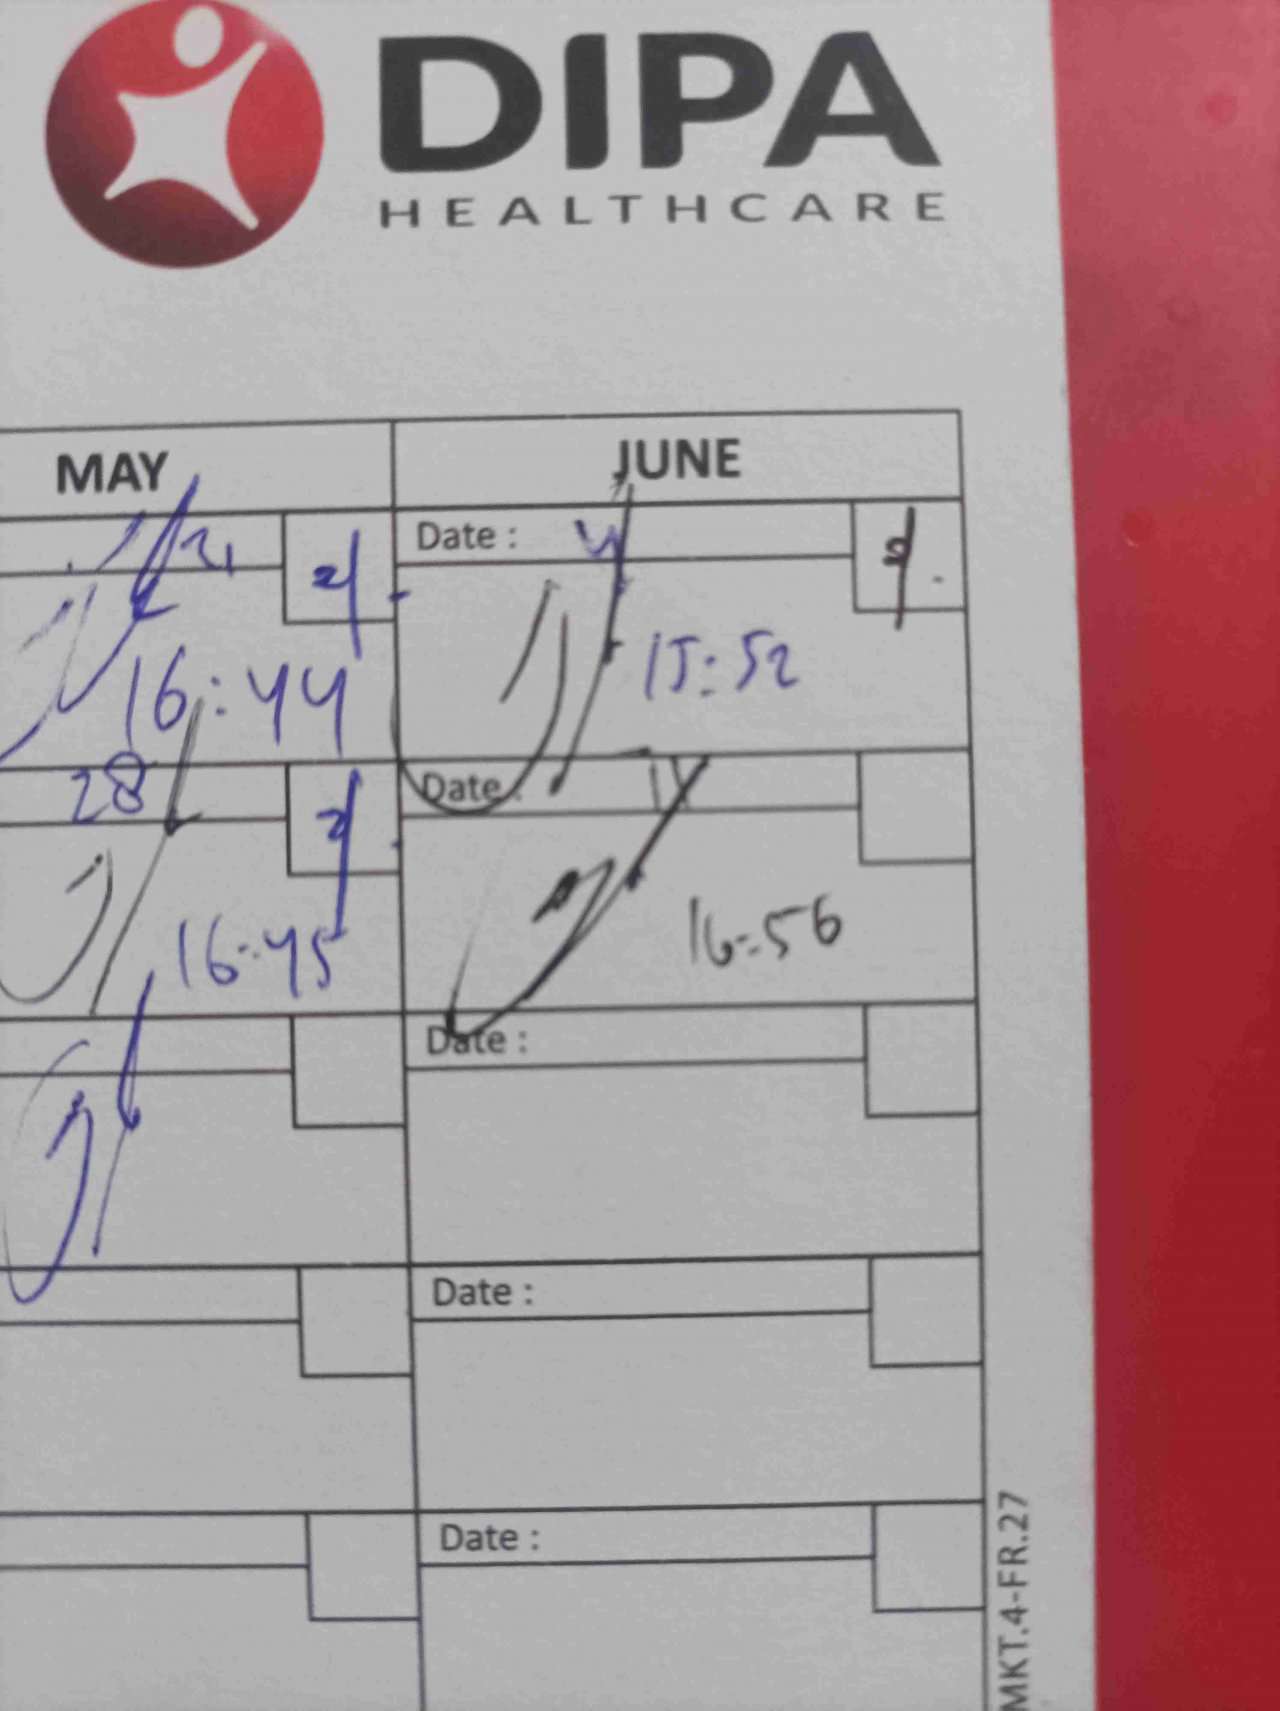 DIPA
HEALTHCARE
MAY
JUNE
21
Date : 4
16:44
15:52
28
Date : 11
16:45
16:56
Date :
Date :
Date :
MKT.4-FR.27